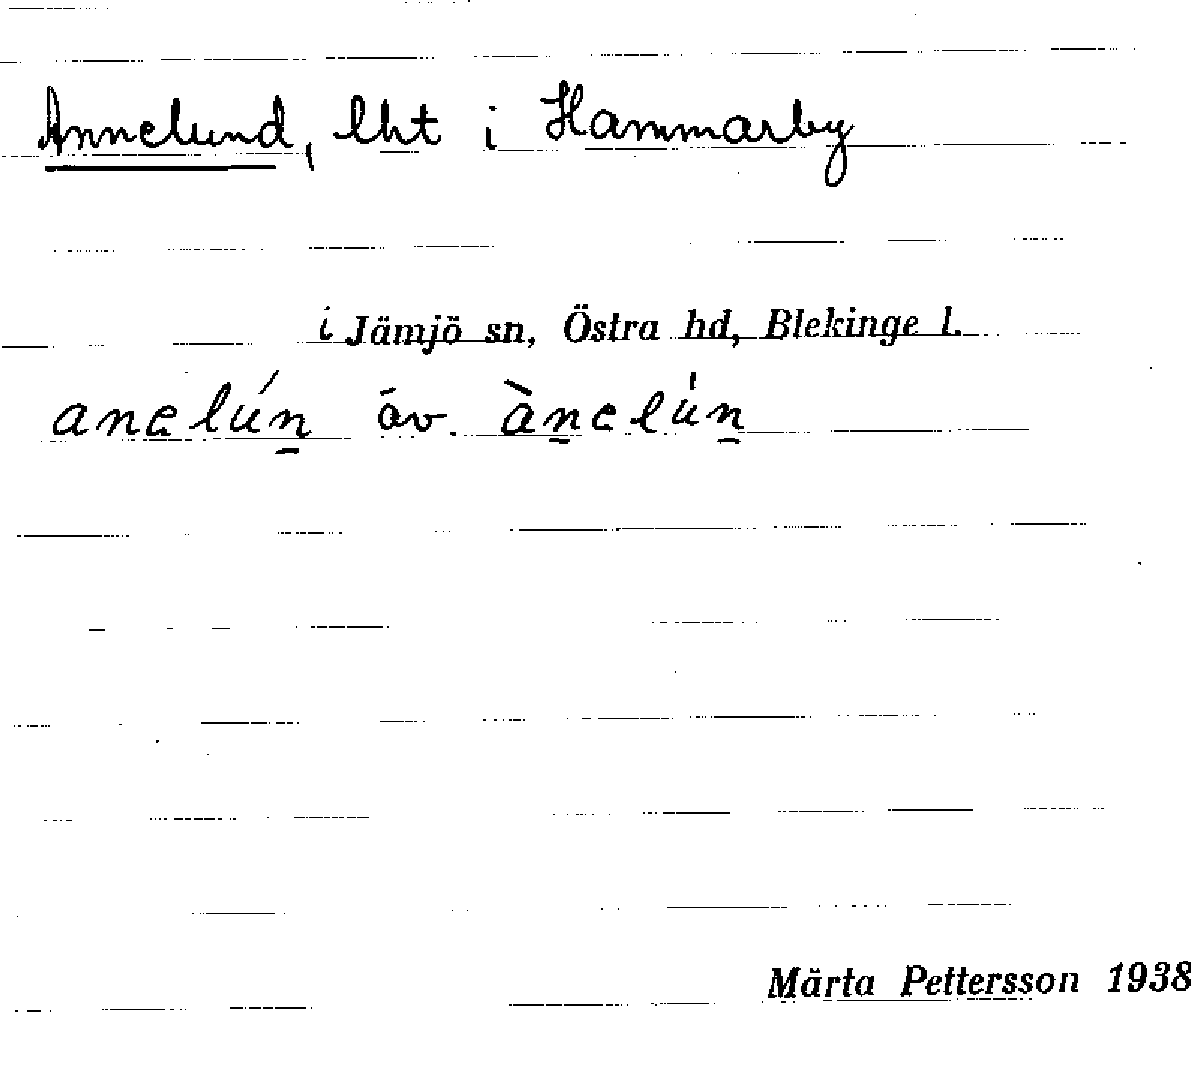 Annelund, lht i Hammarby
i Jämjö sn, Östra hd, Blekinge l.
anelún̲ äv. àn̲elún̲
Märta Pettersson 1938